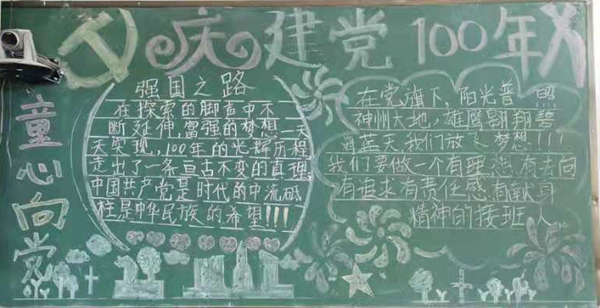 庆建党100年
童心向党
强国之路
在探索的脚声中不
断延伸,富强的梦想一天
天实现,100年的光辉历程
走出了一条亘古不变的真理
中国共产党是时代的中流砥
柱是中华民族的希望!!!
在党旗下,阳光普照
神州大地,雄鹰翱翔碧
海蓝天,我们放飞梦想!!!
我们要做一个有理想有去向
有追求有责任感有献身
精神的接班人